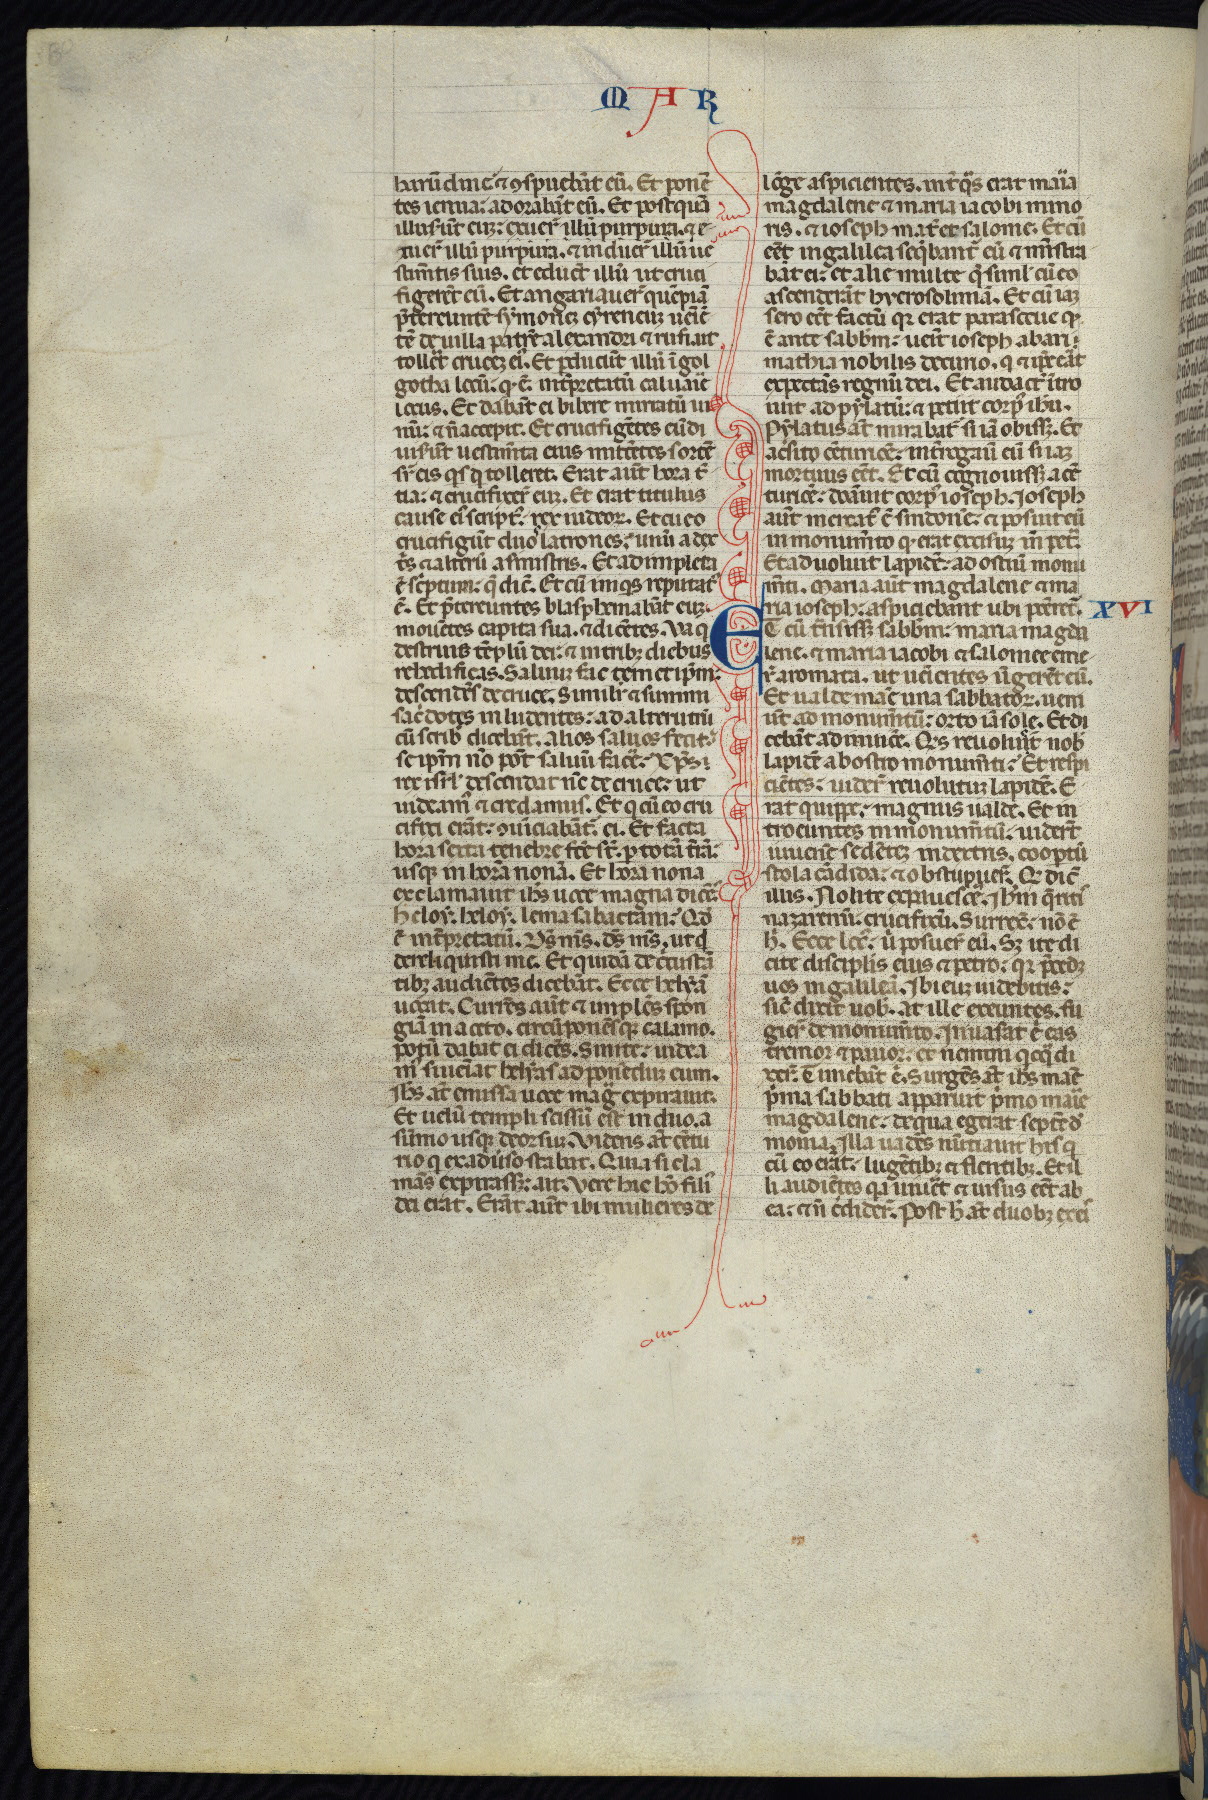 MAR
harūdine ⁊ ꝯspuebāt eū. Et ponē
tes ienua: adorabāt eū. Et postquā
illuserūt ei: exuer̄ illū purpura. ⁊ e
xuer̄ illū purpura. ⁊ induer̄ illū ue
stim̄tis suis. et educūt illū ut cruci
figerēt eū. Et angariauer̄ quēpiā
p̄tereuntē symonē cyreneuz ueniē
tē de uilla patrē alexandri ⁊ rufi ut
tollēt crucez ei᷒. Et ꝑducūt illū ī gol
gotha locū. q. ē. int̄pretatū caluarie
locus. Et dabāt ei bibere mirratū ui
nū: ⁊ n̄ accepit. Et crucifigētes eū di
uiserūt uestim̄ta eius mittētes sortē
sr̄ eis q̄s qͥ tolleret. Erat aūt hora t̄
tia: ⁊ crucifixer̄ euz. Et erat titulus
cause ei᷒ script᷒. rex iudeoꝝ. Et cū eo
crucifigūt duos latrones. unū a dex
tris ⁊ alterū a sinistris. Et adimpleta
ē sc̄ptura: q̄ dic̄. Et cū iniq̄s reputat᷒
ē. Et p̄tereuntes blasphemabāt euz.
mouētes capita sua. ⁊ dicētes. Va qͥ
destruis tēplū dei: ⁊ in tribꝫ diebus
reedificas. Saluum fac temetip̄m
descendēs de cruce. Similiť ⁊ summi
sac̄dotes inludentes: ad alterutrū
cū scribis dicebāt. Alios saluos fecit
seip̄m nō pōt saluū facē. Xp̄s
rex isrl̄ descendat nc̄ de cruce: ut
uideam᷒ ⁊ credamus. Et q cū eo cru
cifixi erāt: ꝯuiciabāt᷒ ei. Et facta
hora sexta tenebre fc̄e st̄ p totā t̄rā
usqꝫ in horā nonā. Et hora nona
exclamauit ih̄s uoce magna dicēs
heloy. heloy. lema sabactani. Qd̄
ē int̄pretatū. Ds̄ ms̄. ds̄ ms̄. ut qͥd
dereliquisti me. Et quidā de cͥcūstā
tibꝫ audiētes dicebāt. Ecce helyā
uocat. Currēs aūt ⁊ implēs spon
giā in aceto. circūponēsqꝫ calamo.
potū dabat ei dicēs. Sinite: uidea
m᷒ si ueniat helyas ad ponēduz eum.
Ih̄s āt emissa uoce mag᷒ expirauit.
Et uelū templi scissū est in duo. a
sūmo usqꝫ deorsuz. Videns āt cētu
rio q ex aduͥso stabat. Quia si cla
mās expirassꝫ: ait. Vere hic hō fili᷒
dei erat. Erāt aūt ibi mulieres de
lōge aspicientes. int̄ q̄s erat maria
magdalene ⁊ maria iacobi mino
ris. ⁊ ioseph mat̄ et salome. Et cū
eēt in galilea seq̄bant᷒ eū ⁊ mīstra
bāt ei: et alie multe q̄ siml̄ cū eo
ascenderāt hyerosolimā. Et cū iaz
sero eēt factū qꝛ erat parasceue q
ē ante sabbm̄: ueīt ioseph ab ari
mathia nobilis decurio. q ⁊ ip̄e erāt
expectās regnū dei. Et audacť ītro
iuit ad pylatū: ⁊ petiit corp᷒ ih̄u.
Pylatus āt mirabat᷒ si iā obissꝫ. Et
ac̄sito cētuiōe. int̄rogauͥ eū si iaz
mortuus eēt. Et cū cognouissꝫ a cē
turiōe: donauit corp᷒ ioseph. Ioseph
aūt mercat᷒ ē sindonē. ⁊ posuit eū
in monum̄to q erat excisuz in pet᷒.
Et aduoluit lapidē: ad ostiū monu
m̄ti. Maria aūt magdalene ⁊ ma
ria ioseph: aspiciebant ubi ponēret᷒.
XVI
ET cū t̄nsissꝫ sabbm̄: maria magda
lene. ⁊ maria iacobi ⁊ salomee eme
r̄ aromata. ut ueientes ūgerēt eū.
Et ualde mane una sabbatoꝝ. ueni
ūt ad monum̄tū: orto iā sole. Et di
cebāt ad inuicē. Qͥs reuoluet nob̄
lapidē ab ostio monum̄ti. Et respi
ciētes: uider̄ reuolutuz lapidē. E
rat quippe. magnus ualde. Et in
troeuntes in monum̄tū: uidert̄
iuuenē sedētez in dextris. cooptū
stola cādida: ⁊ obstupuer̄. Qͥ dic̄
illis. Nolite expauescē. Ih̄m q̄ritis
nazarenū. crucifixū. Surrexͥ. nō ē
h̄. Ecce loc᷒: ū posuer̄ eū. Sꝫ ite di
cite disciplis eius ⁊ petro: qꝛ p̄cedꝫ
uos in galileā. Ibi euz uidebitis:
sic̄ dixit uob̄. At ille exeuntes. fu
gier̄ de monum̄to. Inuaśat ē eas
tremor ⁊ pauor. et nemini qͥcqͣ di
xer̄. Timebāt ē. Surgēs āt ih̄s mane
p̄ma sabbati apparuit p̄mo marie
magdalene: de qua eg̃rat septē de
monia. Illa uadēs nūtiauit his q
cū eo erāt. lugētibꝫ ⁊ flentibꝫ. Et il
li audiētes qa uiuēt ⁊ uisus eēt ab
ea: ⁊ n̄ c̄dider̄. Post h̄ āt duobꝫ exeis